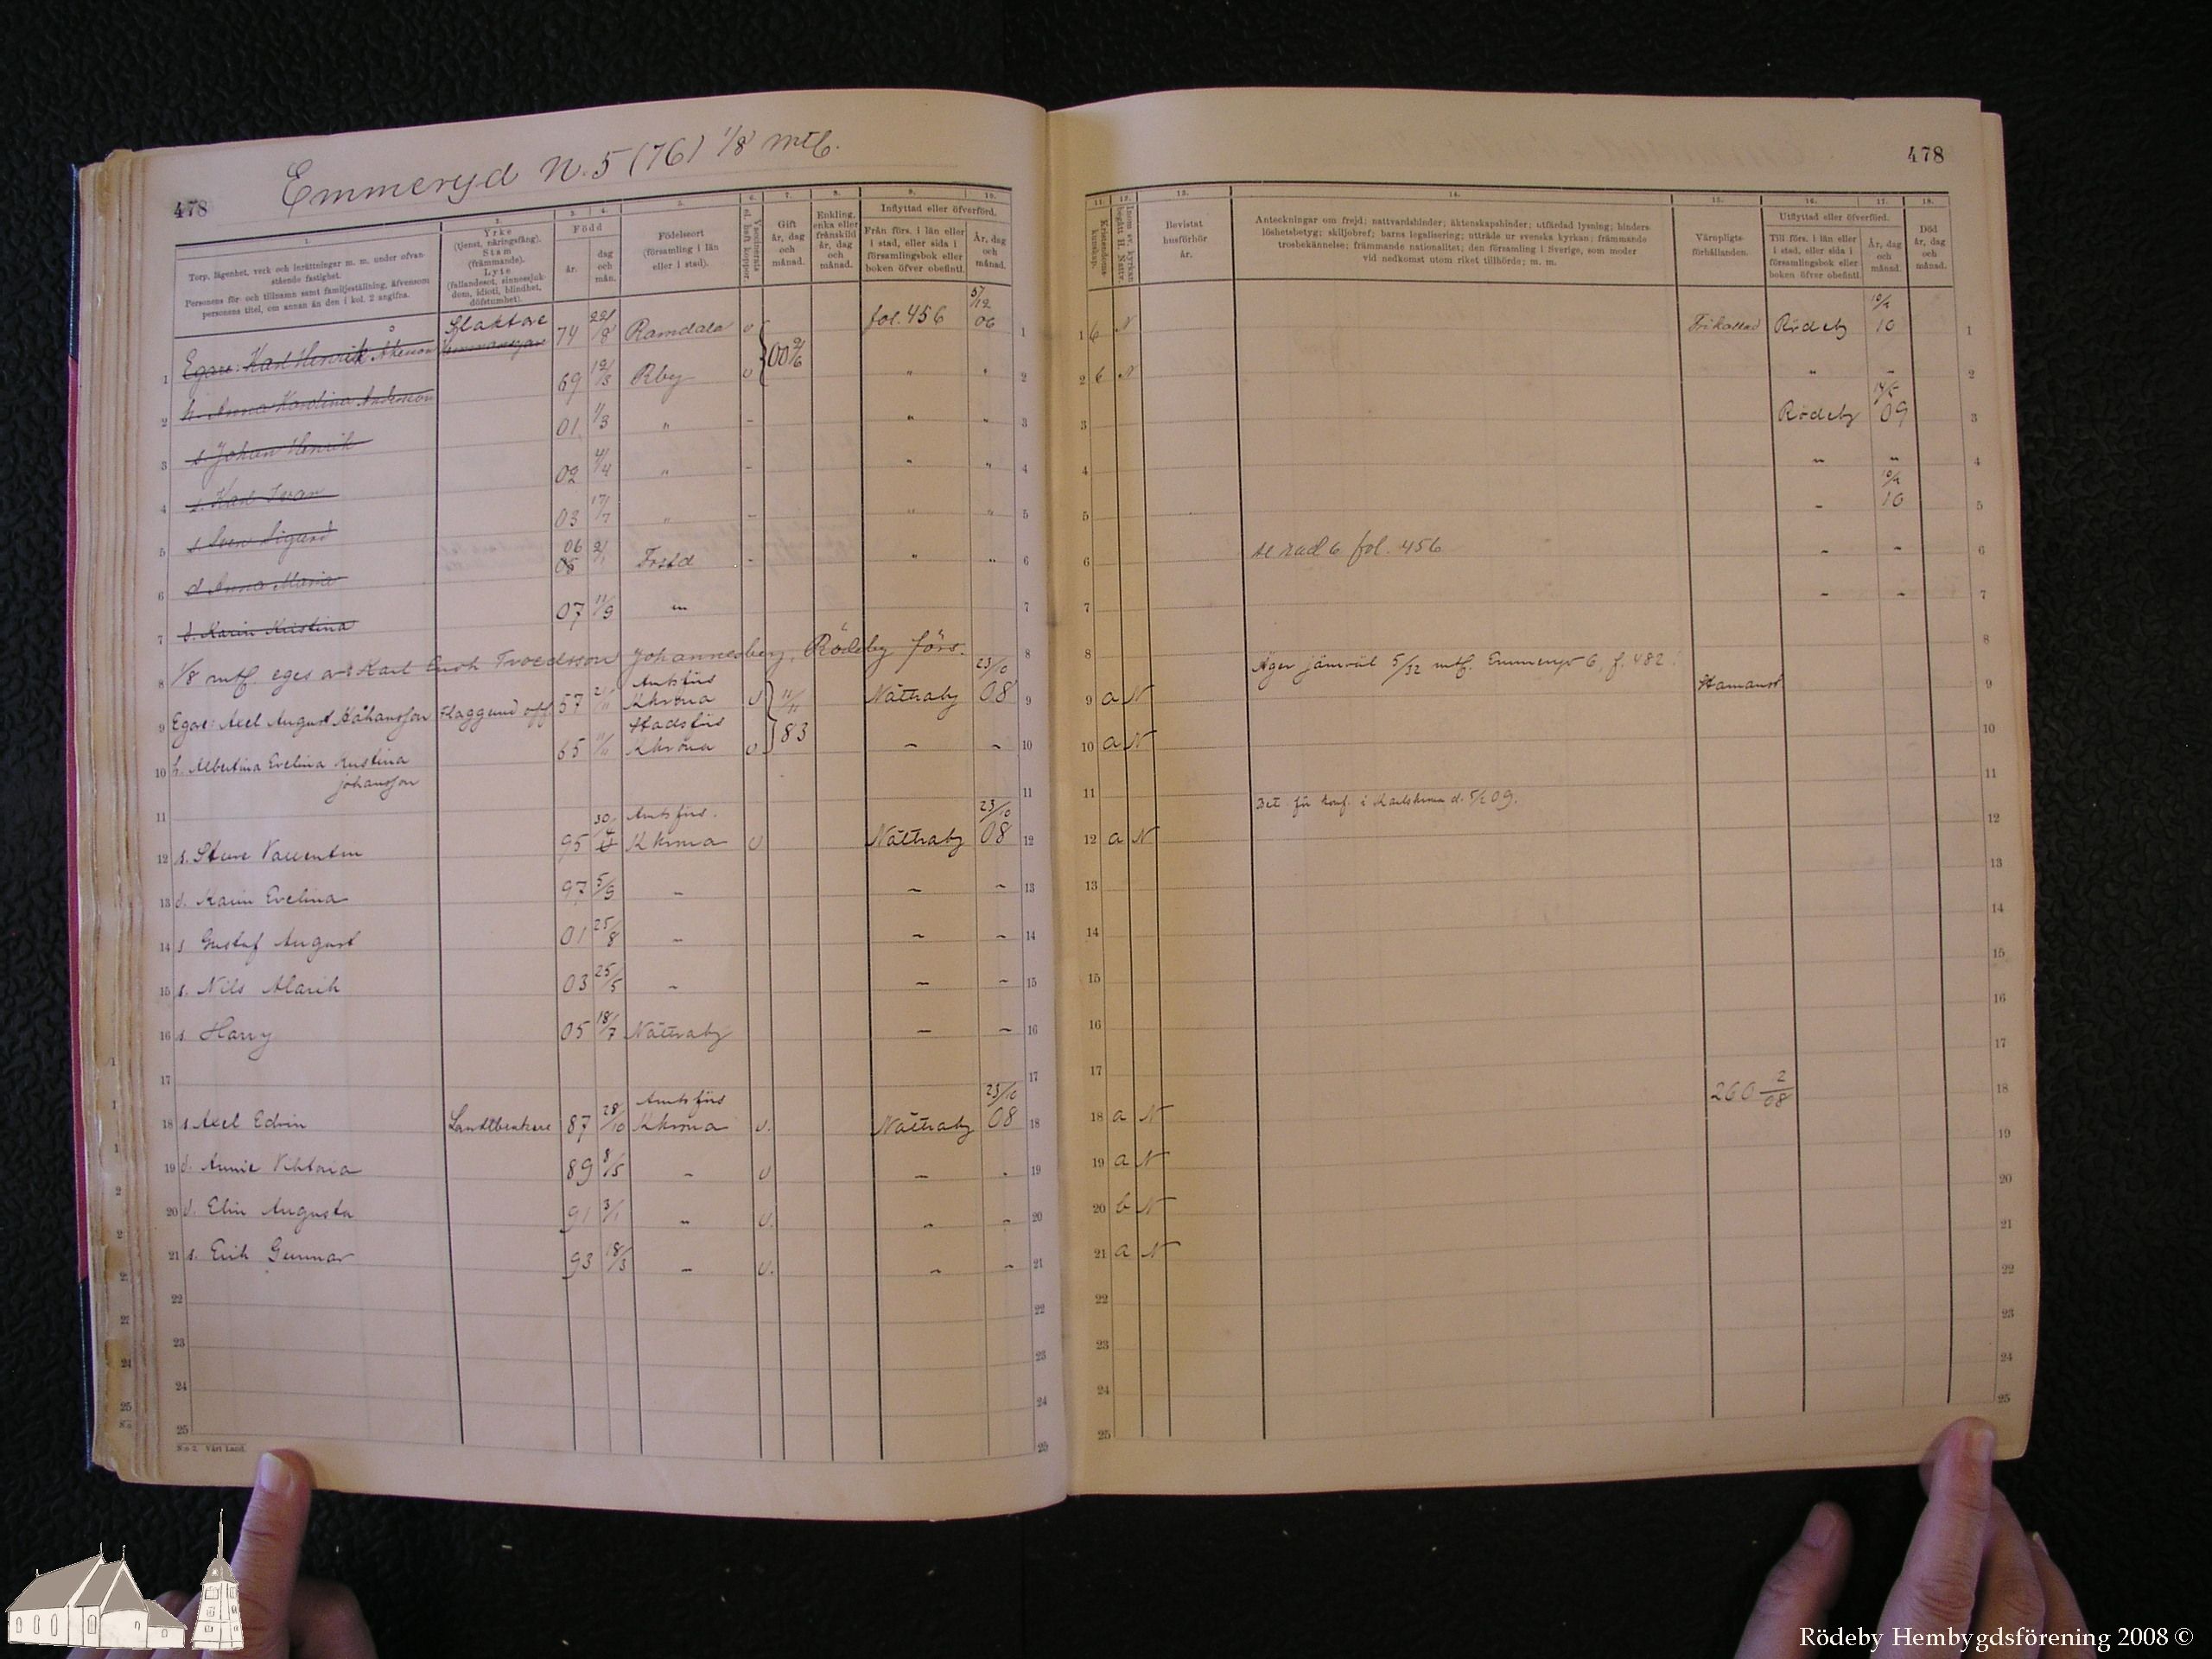 Emmeryd N. 5 (76) 1/8 mtl.
478
478
1. 2. 3. 4. 5. 6. 7. 8. 9. 10.
Torp, lägenhet, verk och inrättningar m. m. under ofvanstående fastighet.
Personens för- och tillnamn samt familjeställning, äfvensom personens titel, om annan än den i kol. 2 angifna.
Yrke (tjenst, näringsfång). Stam (främmande). Lyte (fallandesot, sinnessjukdom, idioti, blindhet, döfstumhet).
Född
år.
dag och mån.
Födelseort (församling i län eller i stad).
Vaccinerats el. haft koppor.
Gift år, dag och månad.
Enkling, enka eller frånskild år, dag och månad.
Inflyttad eller öfverförd.
Från förs. i län eller i stad, eller sida i församlingsbok eller boken öfver obefintl.
År, dag och månad.
11. 12. 13. 14. 15. 16. 17. 18.
Kristendomskunskap.
Inom sv. kyrkan begått H. Nattv.
Bevistat husförhör år.
Anteckningar om frejd; nattvardshinder; äktenskapshinder; utfärdad lysning; hinderslöshetsbetyg; skiljobref; barns legalisering; utträde ur svenska kyrkan; främmande trosbekännelse; främmande nationalitet; den församling i Sverige, som moder vid nedkomst utom riket tillhörde; m. m.
Värnpligtsförhållanden.
Utflyttad eller öfverförd.
Till förs. i län eller i stad, eller sida i församlingsbok eller boken öfver obefintl.
År, dag och månad.
Död år, dag och månad.
1 Egare: Karl Henrik Åkesson Slaktare 74 22/8 Ramdala v 00 2/6 fol. 456 5/12 06 1 b N Frikallad Rödeby 10/2 10
2 h. Anna Karolina Andersson 69 12/3 Rby v " " 2 b N " "
3 s. Johan Henrik 01 1/3 " - " " 3 Rödeby 14/5 09
4 s. Karl Ivar 02 4/4 " - " " 4 " "
5 s. Sven Sigurd 03 17/7 " - " " 5 - 10/2 10
6 d. Anna Maria 06 2/1 Frstd - " " 6 se rad 6 fol. 456 - -
7 d. Karin Kristina 07 11/9 " 7 - -
8 1/8 mtl. eges av Karl Enoh Troedsson Johannesberg, Rödeby förs. 8 Äger jämväl 5/32 mtl. Emmeryd 6, f. 482.
9 Egare: Axel August Håkansson Flaggund.off. 57 Amtsförs Kkrona v 11/11 83 Nättraby 23/10 08 9 a N Stamanst
10 h. Albertina Evelina Kristina Johansson 65 Stadsförs Kkrona v - - 10 a N
11
12 s. Sture Valentin 95 30/ Amtsförs. Kkrona v Nättraby 23/10 08 12 a N Bet. för konf. i Karlskrona d. 5/2 09.
13 d. Karin Evelina 97 5/9 - - - 13
14 s. Gustaf August 01 25/8 - - - 14
15 s. Nils Alarik 03 25/5 - - - 15
16 s. Harry 05 18/7 Nättraby - - 16
17
18 s. Axel Edvin Landtbrukare 87 28/10 Amtsförs Kkrona v. Nättraby 23/10 08 18 a N 260 2/08
19 d. Annie Viktoria 89 8/5 - v - - 19 a N
20 d. Elin Augusta 91 3/1 - v. - - 20 b N
21 s. Erik Gunnar 93 18/3 - v. - - 21 a N
22
23
24
25
N:o 2. Vårt Land.
Rödeby Hembygdsförening 2008 ©